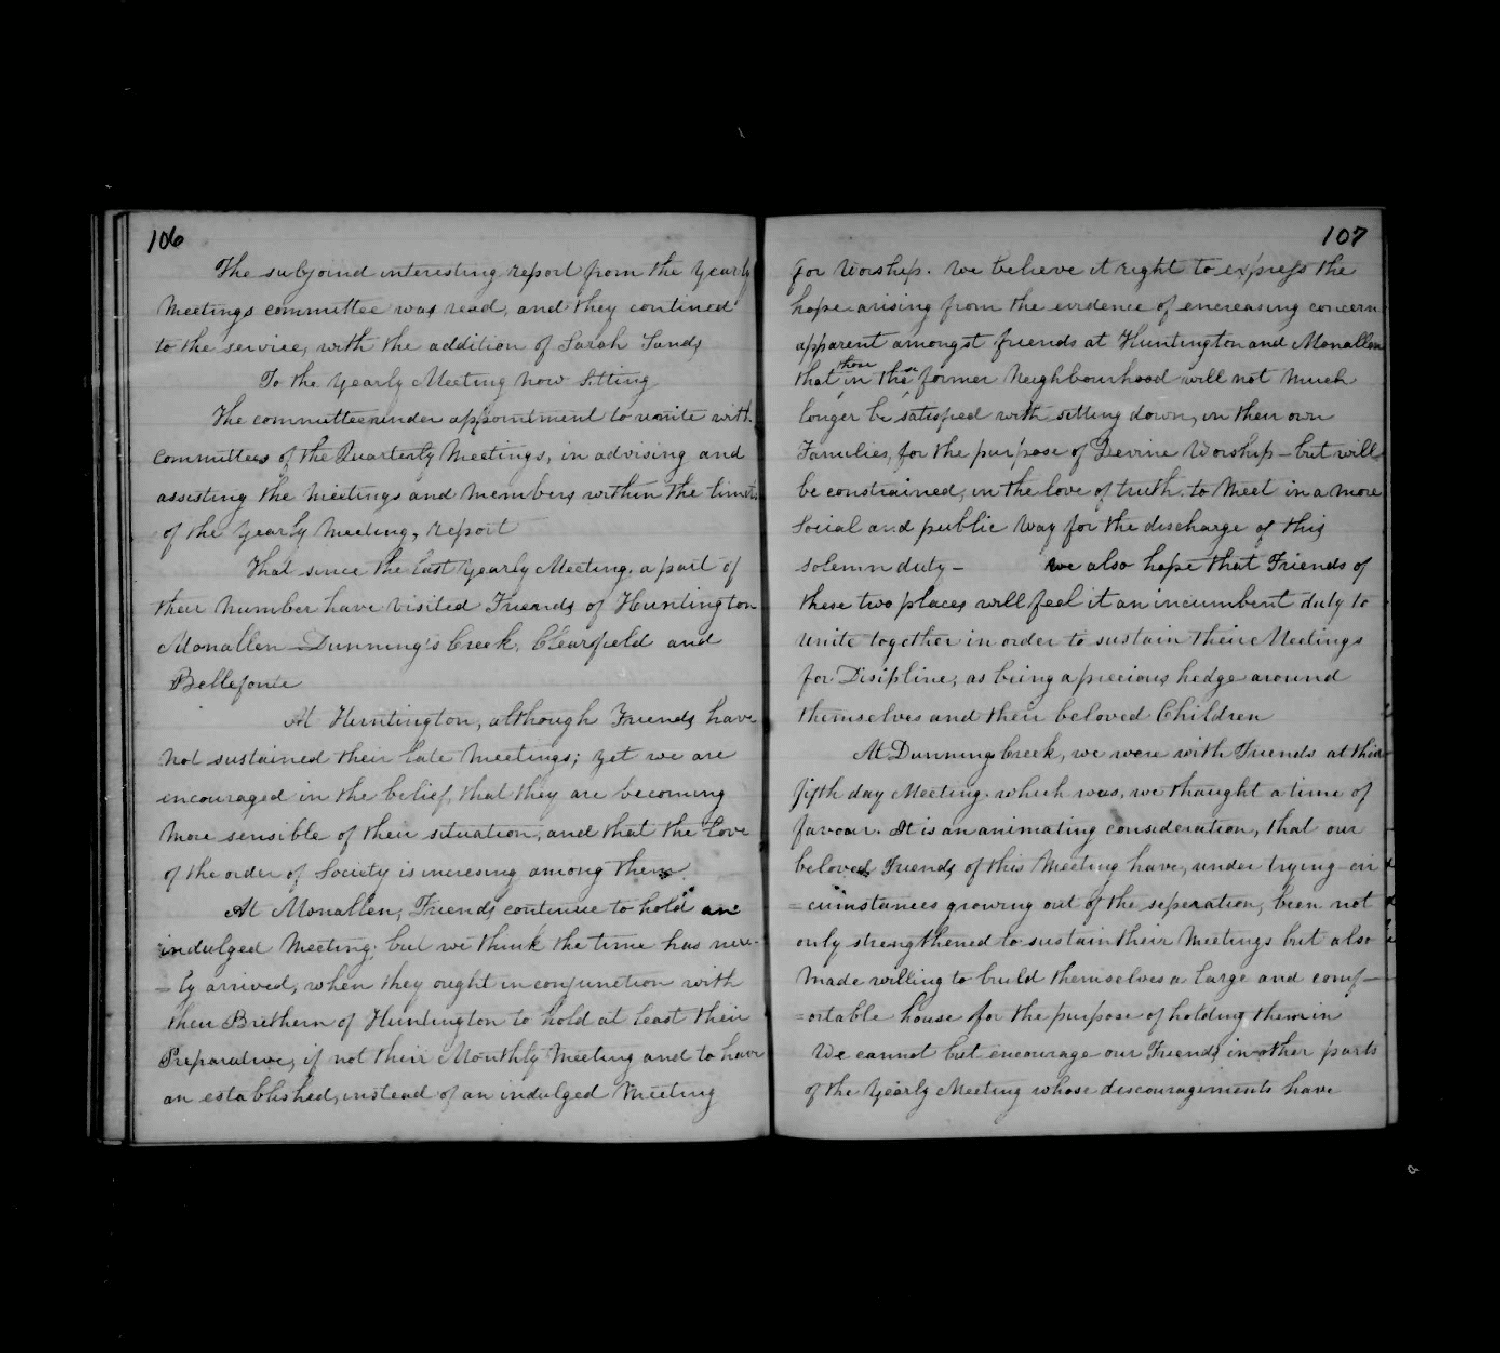 106
The subjoind interesting report from the Yearly
Meetings committee was read, and they contined
to the service, with the addition of Sarah Sands
To the Yearly Meeting now Sitting
The committee under appointment to unite with
committees of the Quarterly Meetings, in advising and
assisting the Meetings and Members within the limits
of the Yearly Meeting, report
That since the last Yearly Meeting a part of
their Number have Visited Friends of Huntington
Monallen Dunning's Creek, Clearfield and
Bellefonte
At Huntington, although Friends have
not sustained their late Meetings; yet we are
encouraged in the belief, that they are becoming
more sensible of their situation, and that the Love
of the order of Society is incresing among them
At Monallen, Friends continue to hold an
indulged Meeting; but we think the time has near-
= ly arrived, when they ought in conjunction with
their Brethern of Huntington to hold at least their
Preparative, if not their Monthly Meeting and to have
an established, instead of an indulged Meeting
107
for Worship. We believe it right to express the
hope arising from the evidence of encreasing concern
apparent amongst friends at Huntington and Monallen
that those in the former Neighbourhood will not Much
longer be satisfied with sitting down, in their own
Families, for the purpose of Devine Worship - but will
be constrained, in the love of truth, to Meet in a more
Social and public Way for the discharge of this
solemn duty - we also hope that Friends of
these two places will feel it an incumbent duty to
Unite together in order to sustain their Meetings
for Disipline, as being a precious hedge around
themselves and their beloved Children
At Dunnings Creek, we were with Friends at their
fifth day Meeting. which was, we thought a time of
favour. It is an animating consideration, that our
beloved Friends of this Meeting have, under trying cir
= cumstances growing out of the seperation, been not
only strengthened to sustain their Meetings but also
Made willing to build themselves a large and comf-
= ortable house for the purpose of holding them in
We cannot but encourage our Friends in other parts
of the Yearly Meeting whose discouragements have